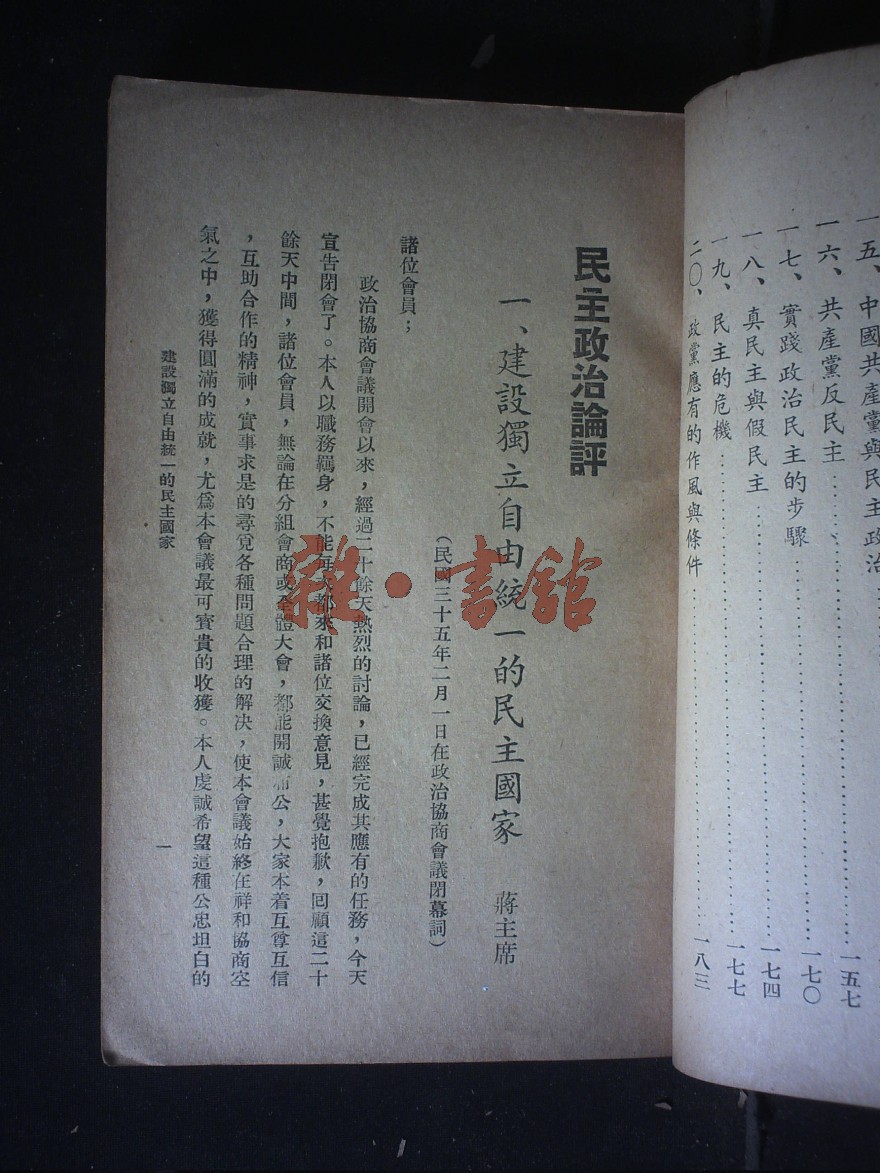 一五、中國共產黨與民主政治
一五七
一六、共產黨反民主
一七〇
一七、實踐政治民主的步驟
一七四
一八、真民主與假民主
一七七
一九、民主的危機
一八三
二〇、政黨應有的作風與條件
民主政治論評
一、建設獨立自由統一的民主國家 蔣主席
(民國三十五年二月一日在政治協商會議閉幕詞)
諸位會員；
政治協商會議開會以來，經過二十餘天熱烈的討論，已經完成其應有的任務，今天
宣告閉會了。本人以職務羈身，不能每次都來和諸位交換意見，甚覺抱歉，回顧這二十
餘天中間，諸位會員，無論在分組會商或全體大會，都能開誠布公，大家本着互尊互信
，互助合作的精神，實事求是的尋覓各種問題合理的解決，使本會議始終在祥和協商空
氣之中，獲得圓滿的成就，尤爲本會議最可寶貴的收獲。本人虔誠希望這種公忠坦白的
建設獨立自由統一的民主國家
一
雜·書館